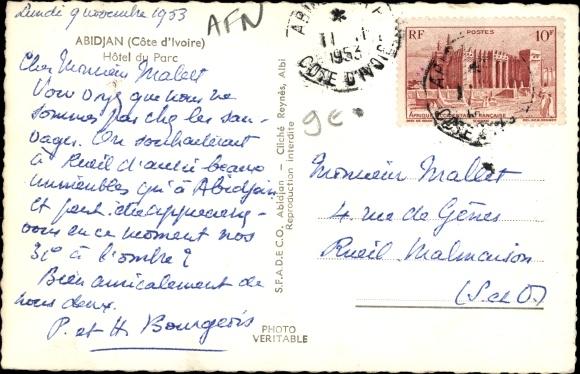 Lundi 9 novembre 1953
AFN
ABIDJAN (Côte d'Ivoire)
Hôtel du Parc
Cher Monsieur Mallet
Vous voyez que nous ne
sommes pas chez les sau-
vages. On souhaiterait
à Rueil d'aussi beaux
immeubles qu'à Abidjan
et peut-être apprécieriez-
vous en ce moment nos
31° à l'ombre ?
Bien amicalement de
nous deux.
P. et H. Bourgeois
S.F.A.D.E.C.O. Abidjan — Cliché Reynès, Albi
Reproduction interdite
PHOTO
VERITABLE
9€
11
1953
COTE D'IVOIRE
RF POSTES 10F
AFRIQUE OCCIDENTALE FRANÇAISE
Monsieur Mallet
4 rue de Gênes
Rueil Malmaison
(S. et O.)